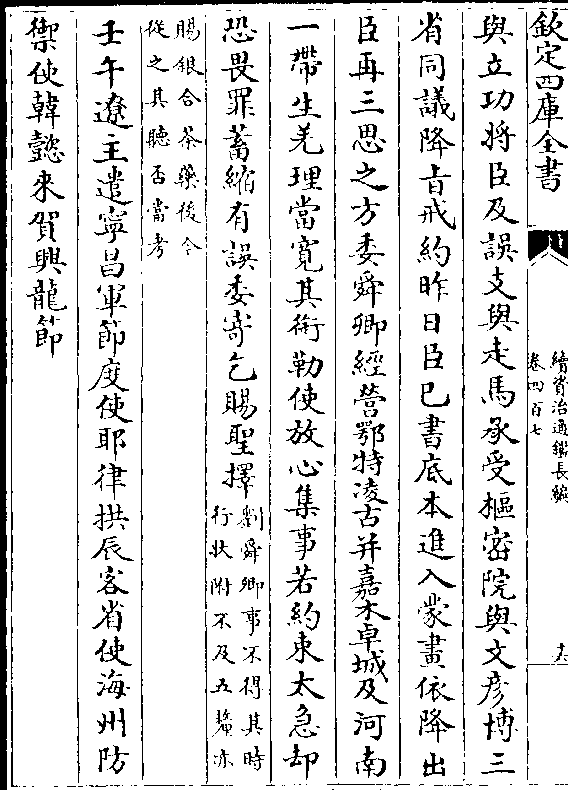 欽定四庫全書
續資治通鑑長編
卷四百七
與立功將臣及誤支與走馬承受樞密院與文彥博三
省同議降㫖戒約昨日臣已書底本進入蒙畫依降出
臣再三思之方委舜卿經營鄂特凌古并嘉木卓城及河南
一帶生羌理當寛其銜勒使放心集事若約束太急却
恐畏罪蓄縮有誤委寄乞賜聖擇劉舜卿事不得其時
行狀附不及五𨤲亦
賜銀合茶藥後令
從之其聽否當考
壬午遼主遣寧昌軍節度使耶律拱辰客省使海州防
禦使韓懿來賀興龍節